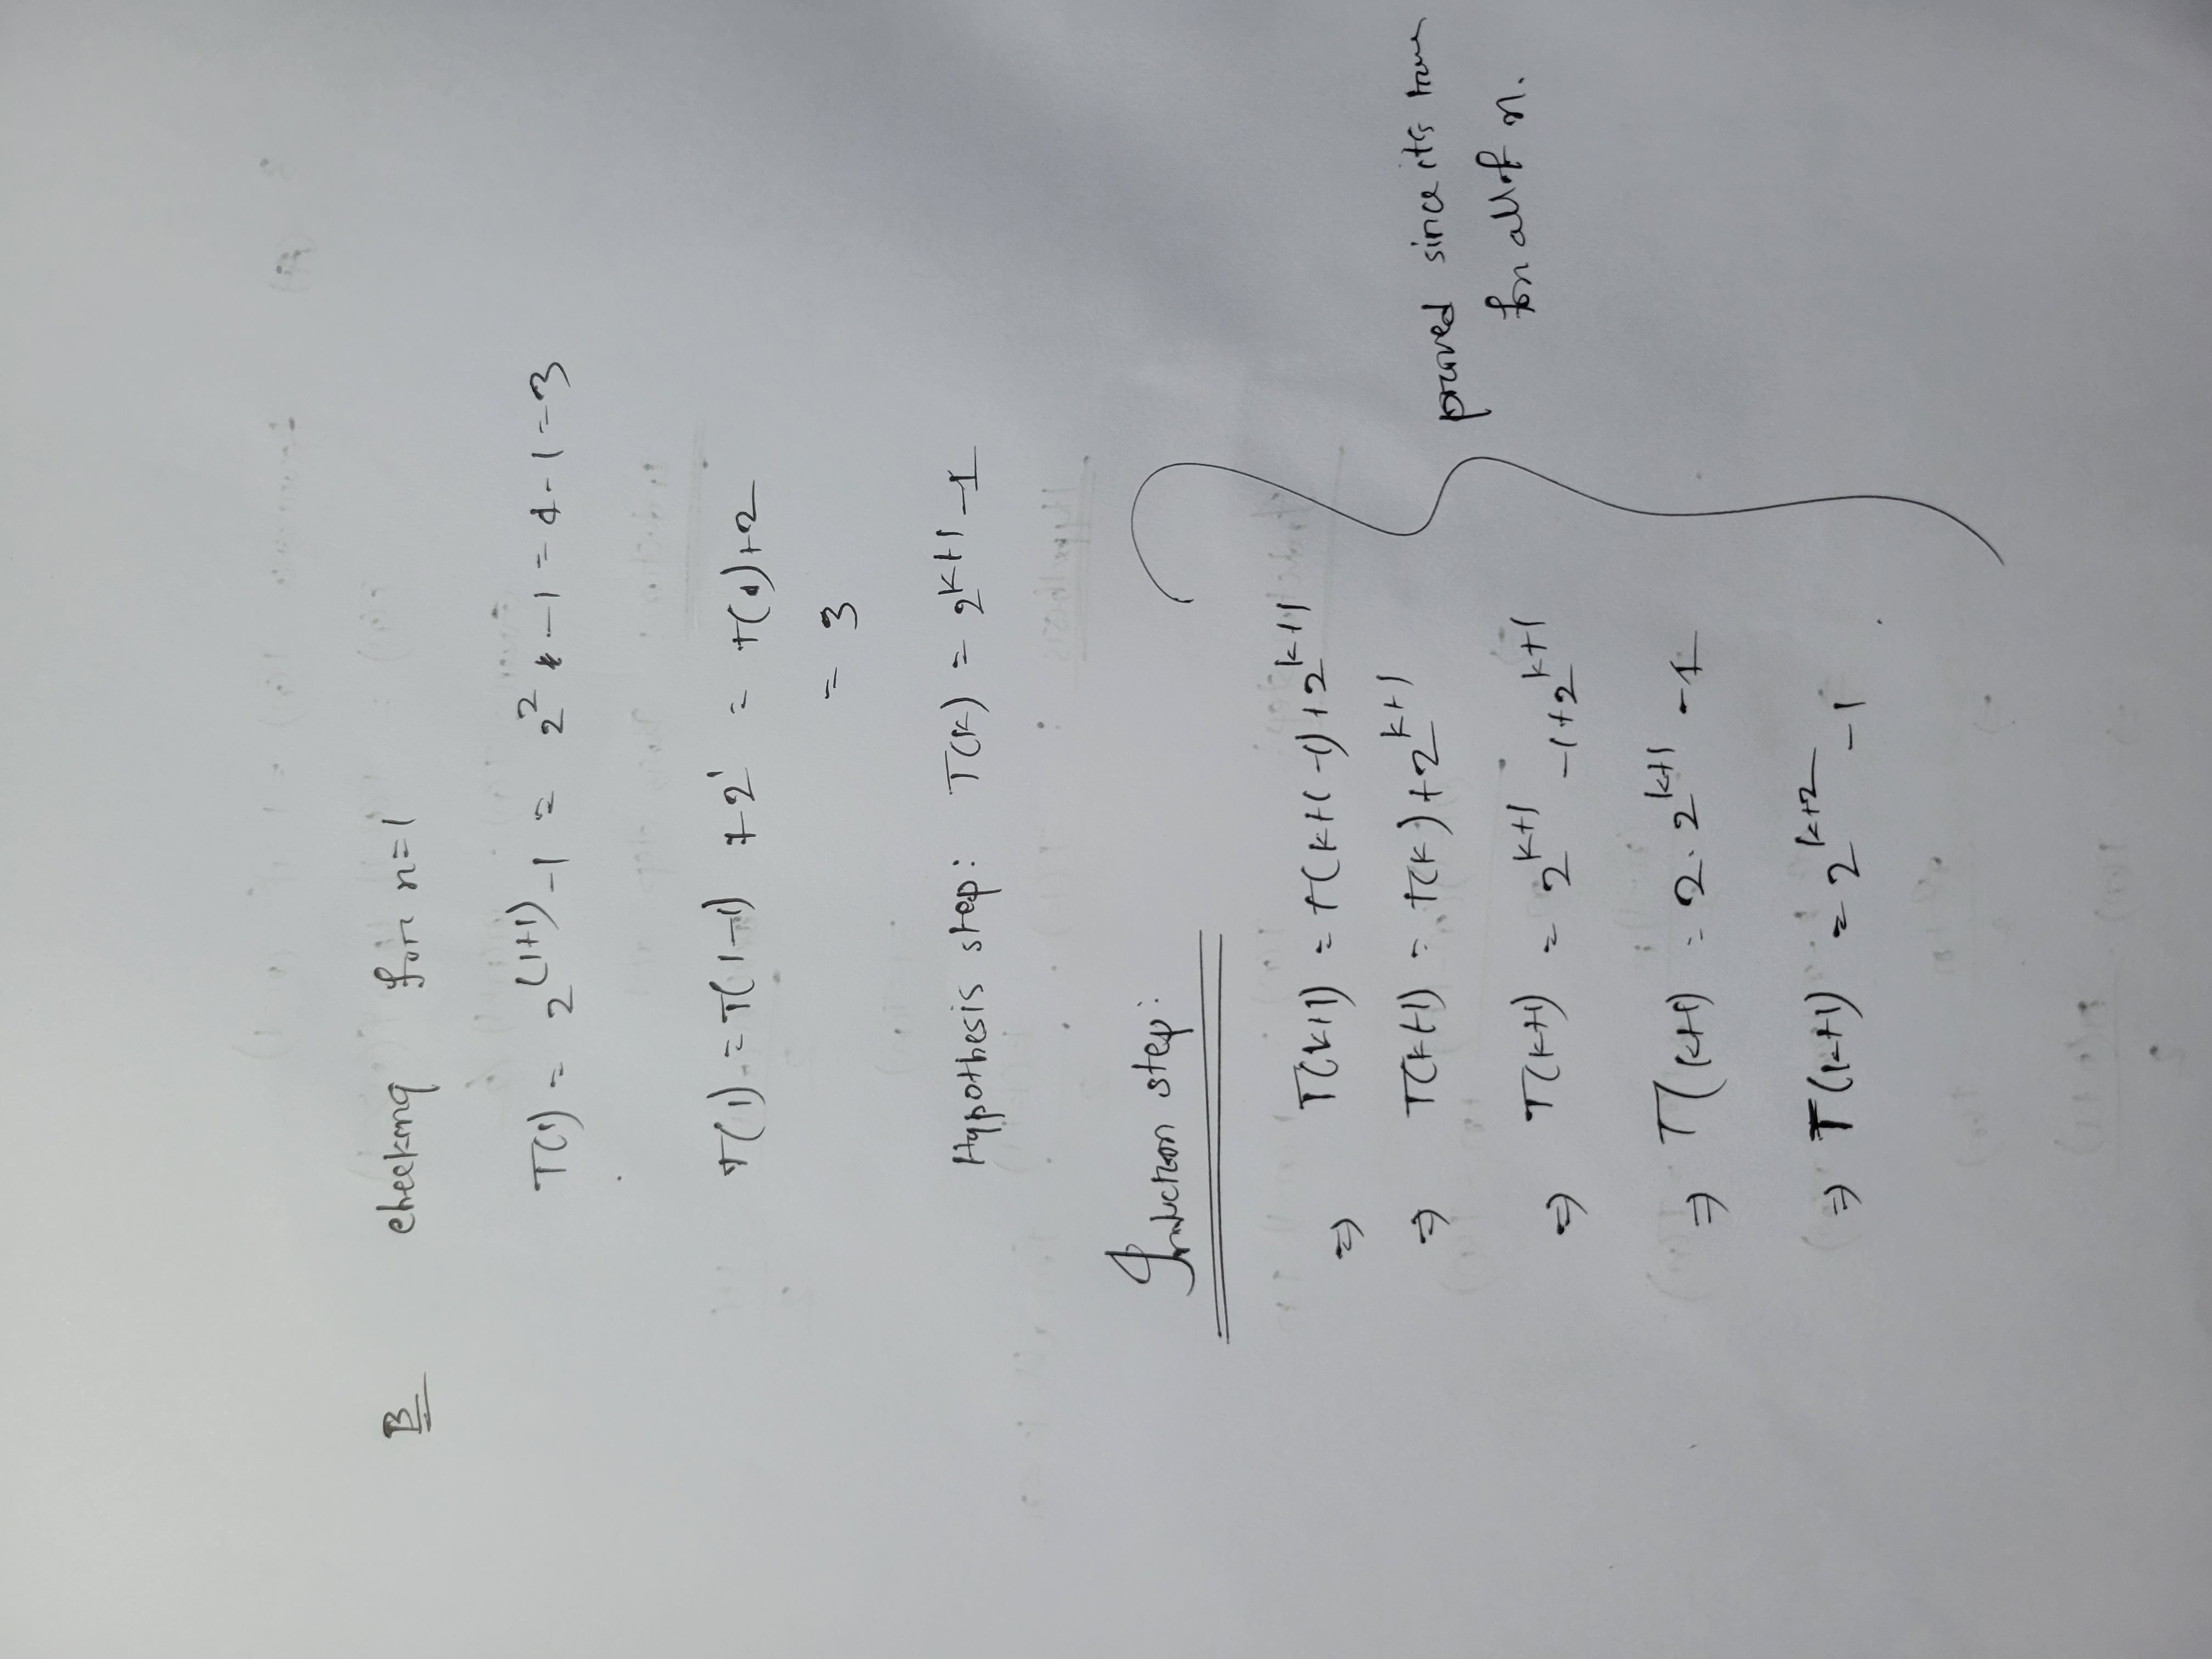 B checking for n=1
T(1) = 2^(1+1) -1 = 2^2 -1 = 4-1 = 3
T(1) = T(1-1) + 2^1 = T(0)+2
= 3
Hypothesis step: T(k) = 2^k+1 -1
Induction step:
⇒ T(k+1) = T(k+1-1)+2^k+1
⇒ T(k+1) = T(k)+2^k+1
⇒ T(k+1) = 2^k+1 -1+2^k+1
⇒ T(k+1) = 2.2^k+1 -1
⇒ T(k+1) = 2^k+2 -1
proved since its true
for all of n.